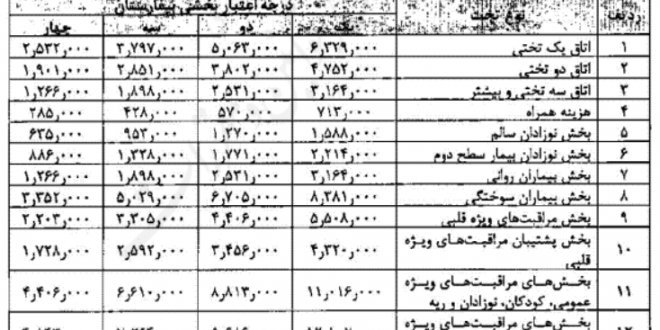 ردیف نوع تخت درجه اعتبار بخشی بیمارستان
یک دو سه چهار
۱ اتاق یک تختی ۶٫۳۲۹٫۰۰۰ ۵٫۰۶۳٫۰۰۰ ۳٫۷۹۷٫۰۰۰ ۲٫۵۳۲٫۰۰۰
۲ اتاق دو تختی ۴٫۷۵۲٫۰۰۰ ۳٫۸۰۲٫۰۰۰ ۲٫۸۵۱٫۰۰۰ ۱٫۹۰۱٫۰۰۰
۳ اتاق سه تختی و بیشتر ۳٫۱۶۴٫۰۰۰ ۲٫۵۳۱٫۰۰۰ ۱٫۸۹۸٫۰۰۰ ۱٫۲۶۶٫۰۰۰
۴ هزینه همراه ۷۱۳٫۰۰۰ ۵۷۰٫۰۰۰ ۴۲۸٫۰۰۰ ۲۸۵٫۰۰۰
۵ بخش نوزادان سالم ۱٫۵۸۸٫۰۰۰ ۱٫۲۷۰٫۰۰۰ ۹۵۳٫۰۰۰ ۶۳۵٫۰۰۰
۶ بخش نوزادان بیمار سطح دوم ۲٫۲۱۴٫۰۰۰ ۱٫۷۷۱٫۰۰۰ ۱٫۳۲۸٫۰۰۰ ۸۸۶٫۰۰۰
۷ بخش بیماران روانی ۳٫۱۶۴٫۰۰۰ ۲٫۵۳۱٫۰۰۰ ۱٫۸۹۸٫۰۰۰ ۱٫۲۶۶٫۰۰۰
۸ بخش بیماران سوختگی ۸٫۳۸۱٫۰۰۰ ۶٫۷۰۵٫۰۰۰ ۵٫۰۲۹٫۰۰۰ ۳٫۳۵۲٫۰۰۰
۹ بخش مراقبت‌های ویژه قلبی ۵٫۵۰۸٫۰۰۰ ۴٫۴۰۶٫۰۰۰ ۳٫۳۰۵٫۰۰۰ ۲٫۲۰۳٫۰۰۰
۱۰ بخش پشتیبان مراقبت‌های ویژه ۴٫۳۲۰٫۰۰۰ ۳٫۴۵۶٫۰۰۰ ۲٫۵۹۲٫۰۰۰ ۱٫۷۲۸٫۰۰۰
قلبی
۱۱ بخش‌های مراقبت‌های ویژه ۱۱٫۰۱۶٫۰۰۰ ۸٫۸۱۳٫۰۰۰ ۶٫۶۱۰٫۰۰۰ ۴٫۴۰۶٫۰۰۰
عمومی، کودکان، نوزادان و ریه
بخش‌های مراقبت‌های ویژه